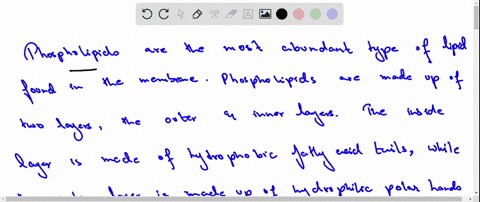 Phospholipids are the most abundant type of lipid
found in the membrane. Phospholipids are made up of
two layers, the outer & inner layers. The inside
layer is made of hydrophobic fatty acid tails, while
layer is made up of hydrophilic polar heads